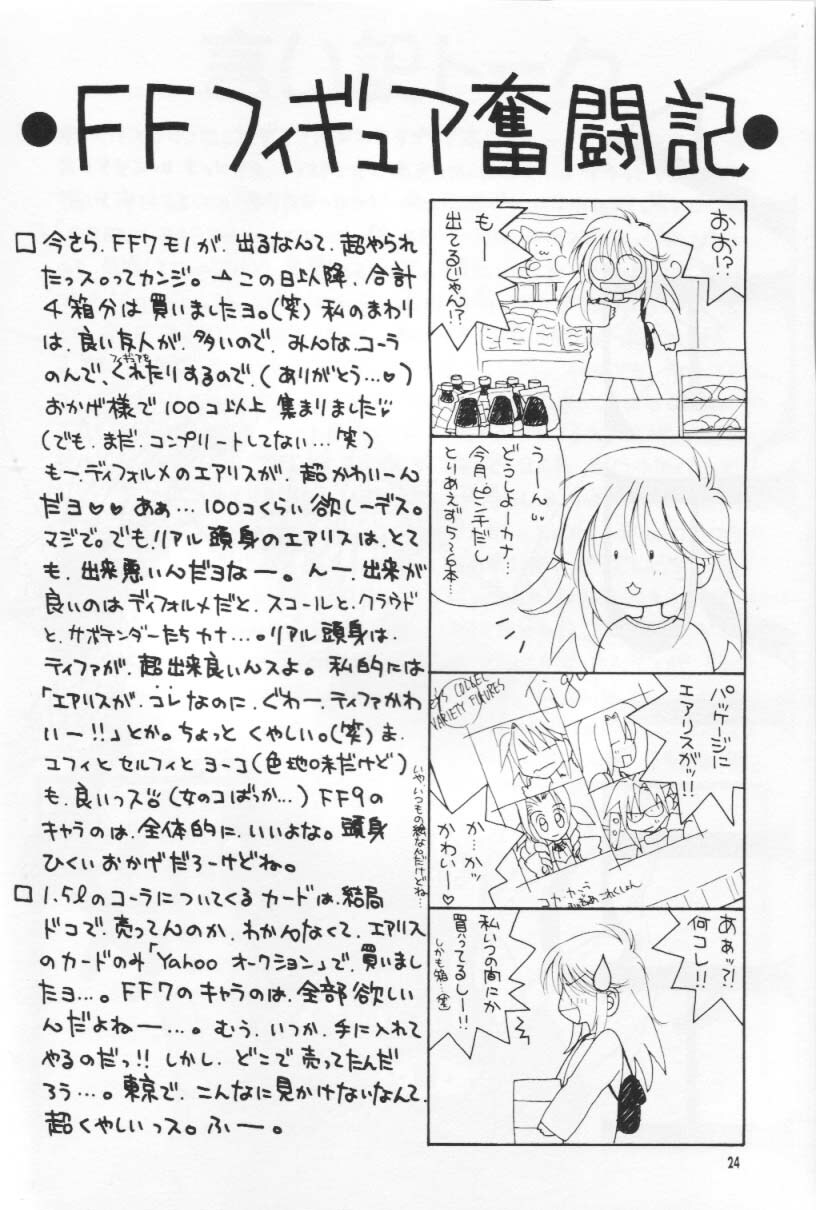 ●FFフィギュア奮闘記●
□今さら、FF7モノが、出るなんて、超やられ
たっス。ってカンジ。→この日以降、合計
4箱分は買いましたヨ。(笑)私のまわり
は、良い友人が、多いので、みんな、コーラ
のんで、くれたりするので、(ありがとう…♥)
フィギュアを
おかげ様で100コ以上集まりました
(でも、まだ、コンプリートしてない…笑)
もー、ディフォルメのエアリスが、超かわいーん
だヨ♥♥ あぁ…100コくらい欲しーデス。
マジで。でも、リアル頭身のエアリスは、とて
も、出来悪いんだヨなー。んー、出来が
良いのはディフォルメだと、スコールと、クラウド
と、サボテンダーたちカナ…。リアル頭身は、
ティファが、超出来良いんスよ。私的には
「エアリスが、コレなのに、ぐわー、ティファかわ
いー!!」とか。ちょっとくやしい。(笑)ま、
ユフィとセルフィとヨーコ(色地味だけど)
も、良いっス (女のコばっか…)FF9の
キャラのは、全体的に、いいよな。頭身
ひくいおかげだろーけどね。
□1.5ℓのコーラについてくるカードは、結局
ドコで、売ってんのか、わかんなくて、エアリス
のカードのみ「Yahooオークション」で、買いまし
たヨ…。FF7のキャラのは、全部欲しい
んだよねー…。むう、いつか、手に入れて
やるのだっ!!しかし、どこで売ってたんだ
ろう…。東京で、こんなに見かけないなんて、
超くやしいっス。ふー。
おお!?
もー
出てるじゃん!?
うーん
どうしよーカナ…
今月ピンチだし
とりあえず5~6本…
パッケージに
エアリスがッ!!
か…かッ
かわいー♡
VARIETY FIGURES
いや、いつもの絵なんだけどね…
あぁッ?!
何コレ!!
私いつの間にか
買ってるしー!!
しかも箱…(笑)
24